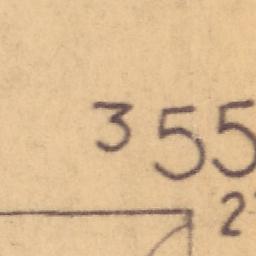 ³55
2